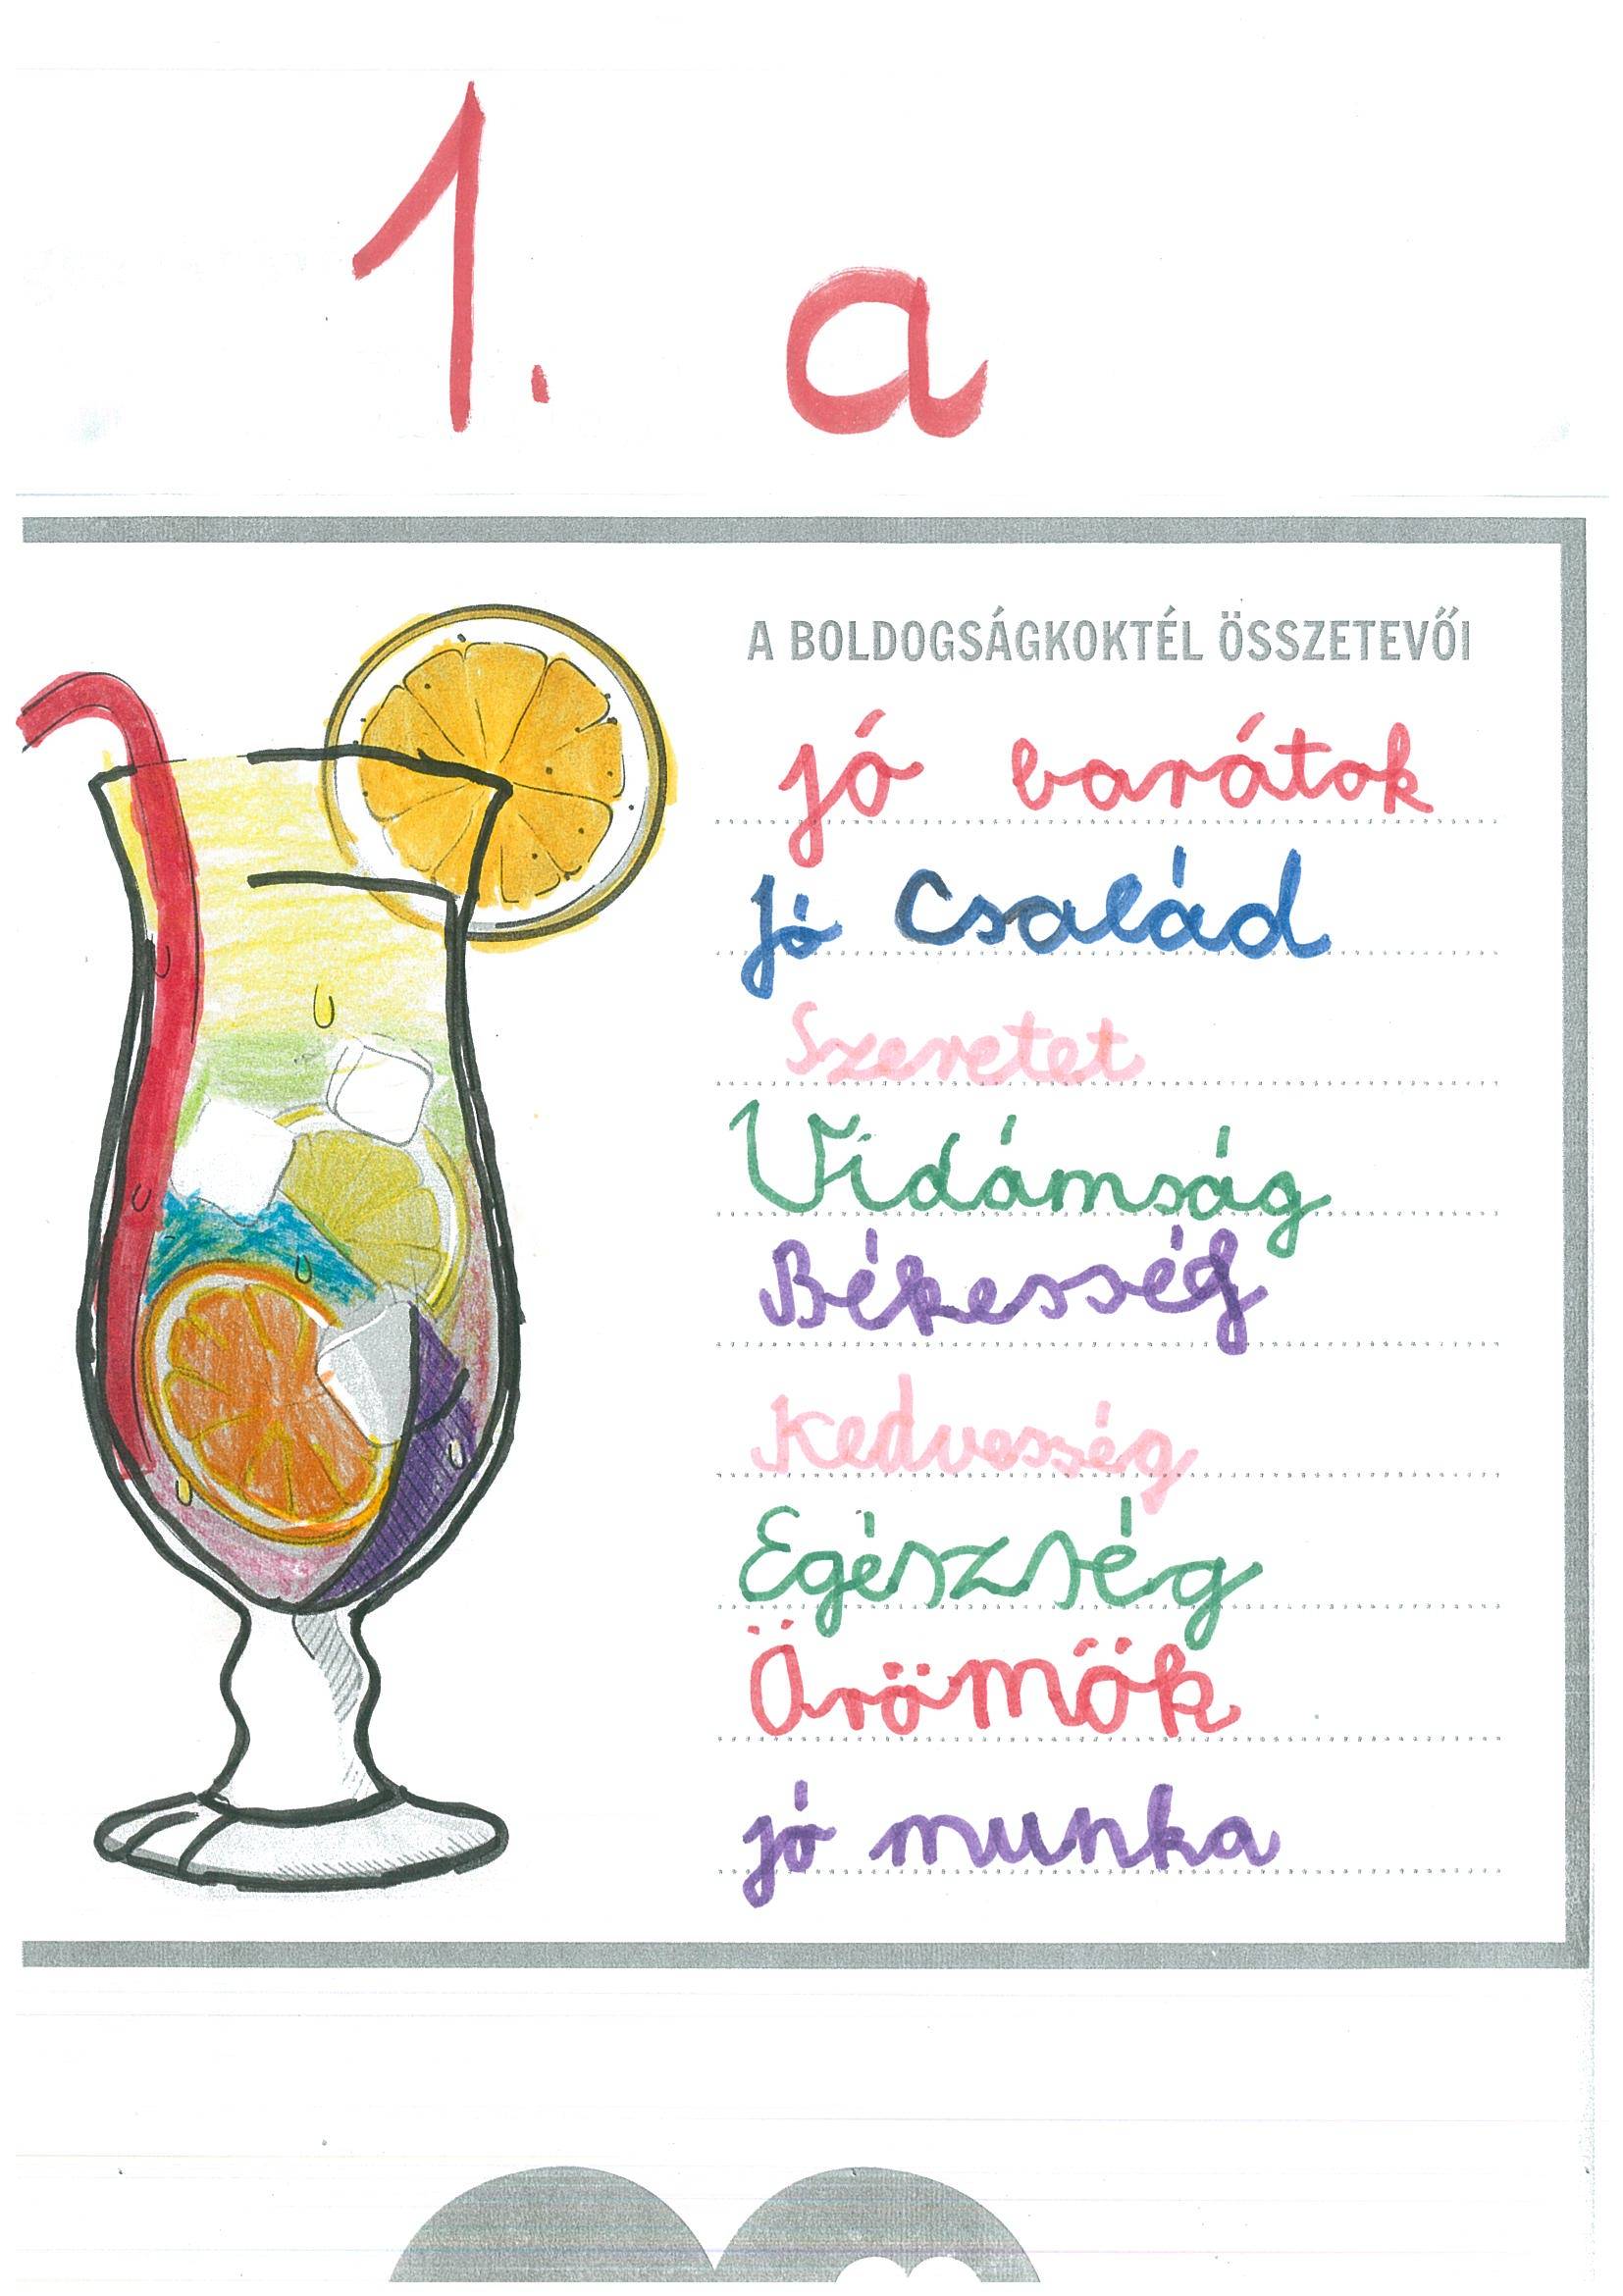 1. a
A BOLDOGSÁGKOKTÉL ÖSSZETEVŐI
jó barátok
Jó Család
Szeretet
Vidámság
Békesség
Kedvesség
Egészség
Örömök
jó munka